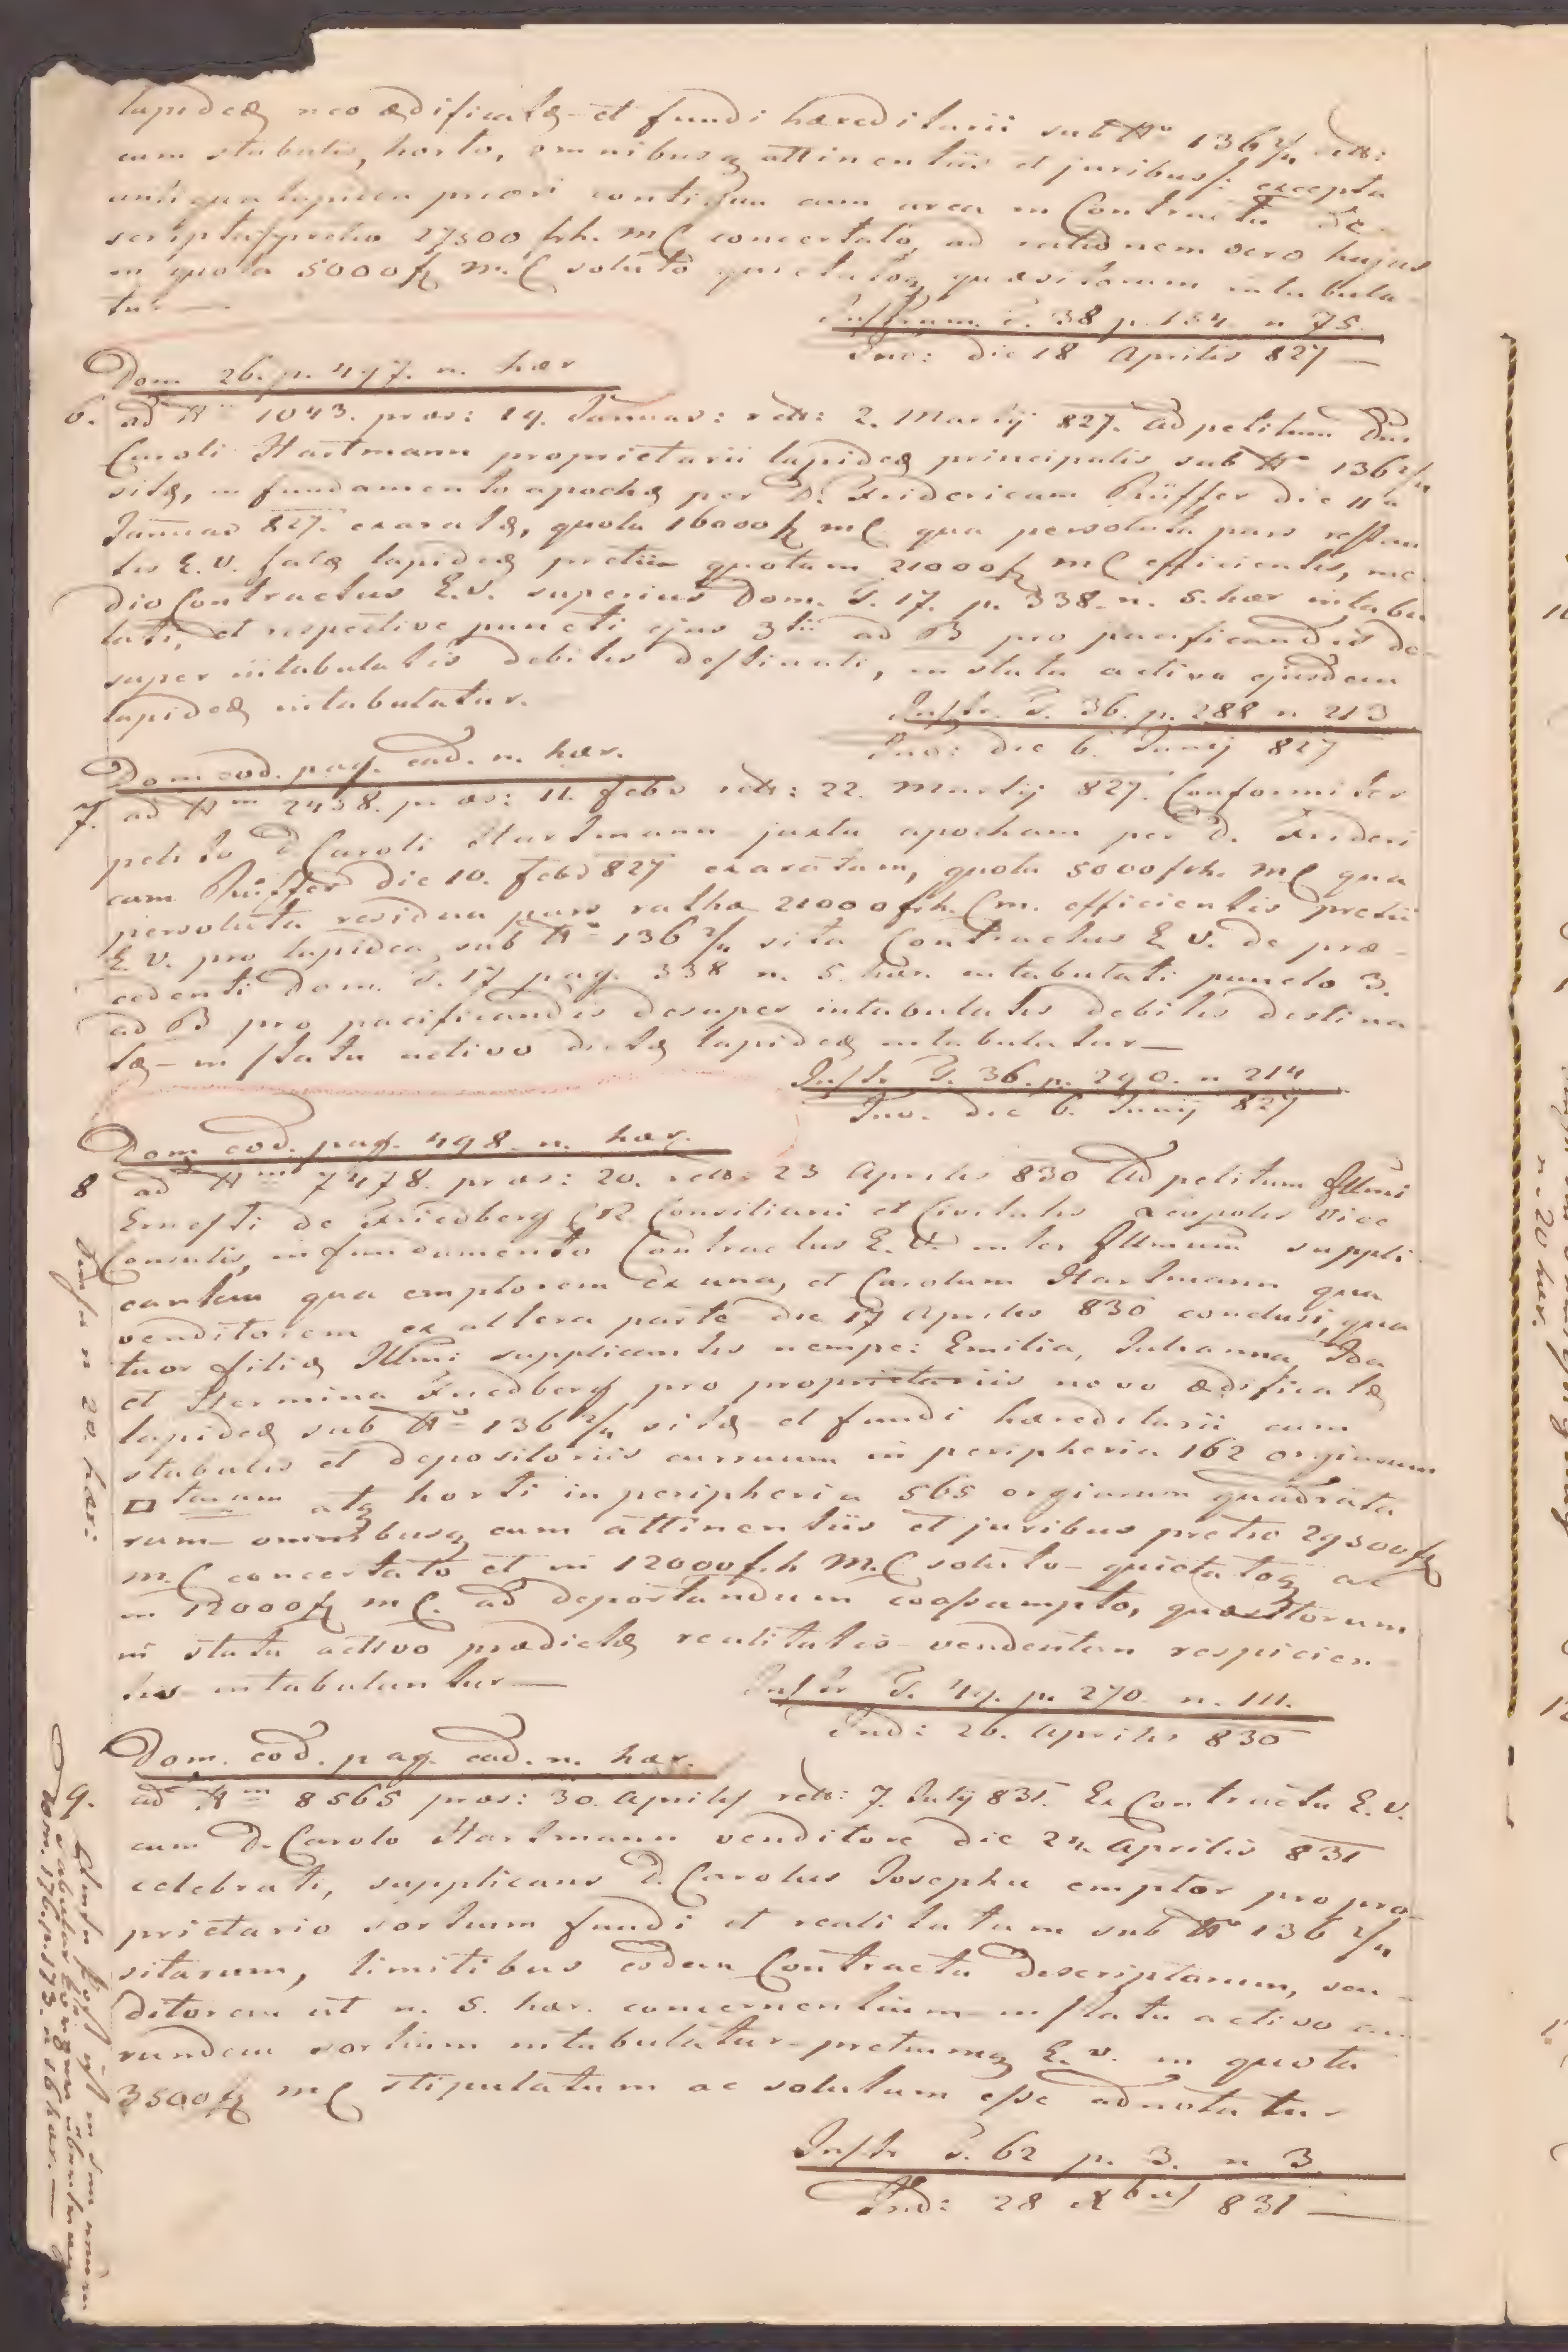 lapideæ neo ædificatæ et fundi hæreditarii sub Nº 136 2/4
cum stabulis, horto, omnibusq attinentiis et juribus /: excepta
antiqua lapidea priori contigua cum area in Contractu de-
scripta/ pretio 27500 frh. M C concertato, ad rationem vero hujus
in quota 5000 f M. C soluto quietatoq quæsitorum intabula-
tur —
Instrum. T. 38 p. 154 n 75.
Ind: die 18 Aprilis 827 —
Dom. 26. p. 497. n. hær
6. ad Nm 1043. præs: 19. Januar: reto: 2. Martij 827. Ad petitum Dni
Caroli Hartmann proprietarii lapideæ principalis sub Nº 136 2/4
sitæ, in fundamento apochæ per D. Fridericum Püffer die 11a
Januar 827. exaratæ, quota 16000 f M C qua persoluta pars restan
tis E. V. fatæ lapideæ pretii quotam 21000 f M C efficientis, me-
dio Contractus E. V. superius Dom. T. 17. p. 338. n. 5. hær intabu
lati, et respective puncti ejus 3tii ad B pro pacificandis de-
super intabulatis debitis destinati, in statu activo ejusdem
lapideæ intabulatur.
Instr. T. 36. p. 288 n 213
Ind: die 6. Junij 827
Dom. eod. pag. ead. n. hær.
7. ad Nm 2458. præs: 11. Febr reto: 22. Martij 827. Conformiter
petito D Caroli Hartmann juxta apocham per D. Frideri
cum Püffer die 10. Febr 827 exaratam, quota 5000 frh. M C qua
persoluta residua pars rathæ 21000 frh. C m. efficientis pretii
E. V. pro lapidea sub Nº 136 2/4 sita Contractus E. V. de præ-
cedenti Dom. T. 17 pag. 338 n. 5. hær. intabulati puncto 3.
ad B pro pacificandis desuper intabulatis debitis destina
tæ — in statu activo dictæ lapideæ intabulatur —
Instr T. 36. p. 290. n 214
Ind. die 6. Junij 827
Dom eod. pag. 498. n. hær.
8 ad Nm 7478. præs: 20. reto: 23 Aprilis 830 Ad petitum Illmi
Ernesti de Friedberg C R. Consiliarii et Civitatis Leopolis Vice
Consulis, in fundamento Contractus E. V. inter Illmum suppli-
cantem qua emptorem ex una, et Carolum Hartmann qua
venditorem ex altera parte die 17 Aprilis 830 conclusi, qua
tuor filiæ Illmi supplicantis nempe: Emilia, Julianna, Ida
et Hermina Friedberg pro proprietariis novo ædificatæ
lapideæ sub Nº 136 2/4 sitæ et fundi hæreditarii cum
stabulis et depositoriis curruum in peripheria 162 orgiarum
□ tarum atq horti in peripheria 565 orgiarum quadrata
rum — omnibusq cum attinentiis et juribus pretio 29500 f
M. C concertato et in 12000 frh M. C soluto — quietatoq ac
in 12000 f M C. ad deportandum coassumpto, quæsitorum
in statu activo prædictæ realitatis vendentem respicien-
tis intabulantur —
Instr T. 49. p. 270. n. 111.
Ind: 26. Aprilis 830
n 20. hær:
Dom. eod. pag. ead. n. hær.
9. ad Nm 8565 præs: 30. Aprilis reto: 7. Julij 831. Ex Contractu E. V.
cum D. Carolo Hartmann venditore die 24. Aprilis 831
celebrati, supplicans D. Carolus Josephu emptor pro pro-
prietario sortium fundi et realitatum sub Nº 136 2/4
sitarum, limitibus eodem Contractu descriptarum, ven-
ditorem ut n. 5. hær. concernentium in statu activo ea-
rundem sortium intabulatur — pretiumq E. V. in quota
3500 f M C stipulatum ac solutum esse adnotatur
Instr T. 62 p. 3. n 3.
Ind: 28 Xbris 831 —
Dom. 176. p. 173. n 16 hær. —
n. 20 hær.